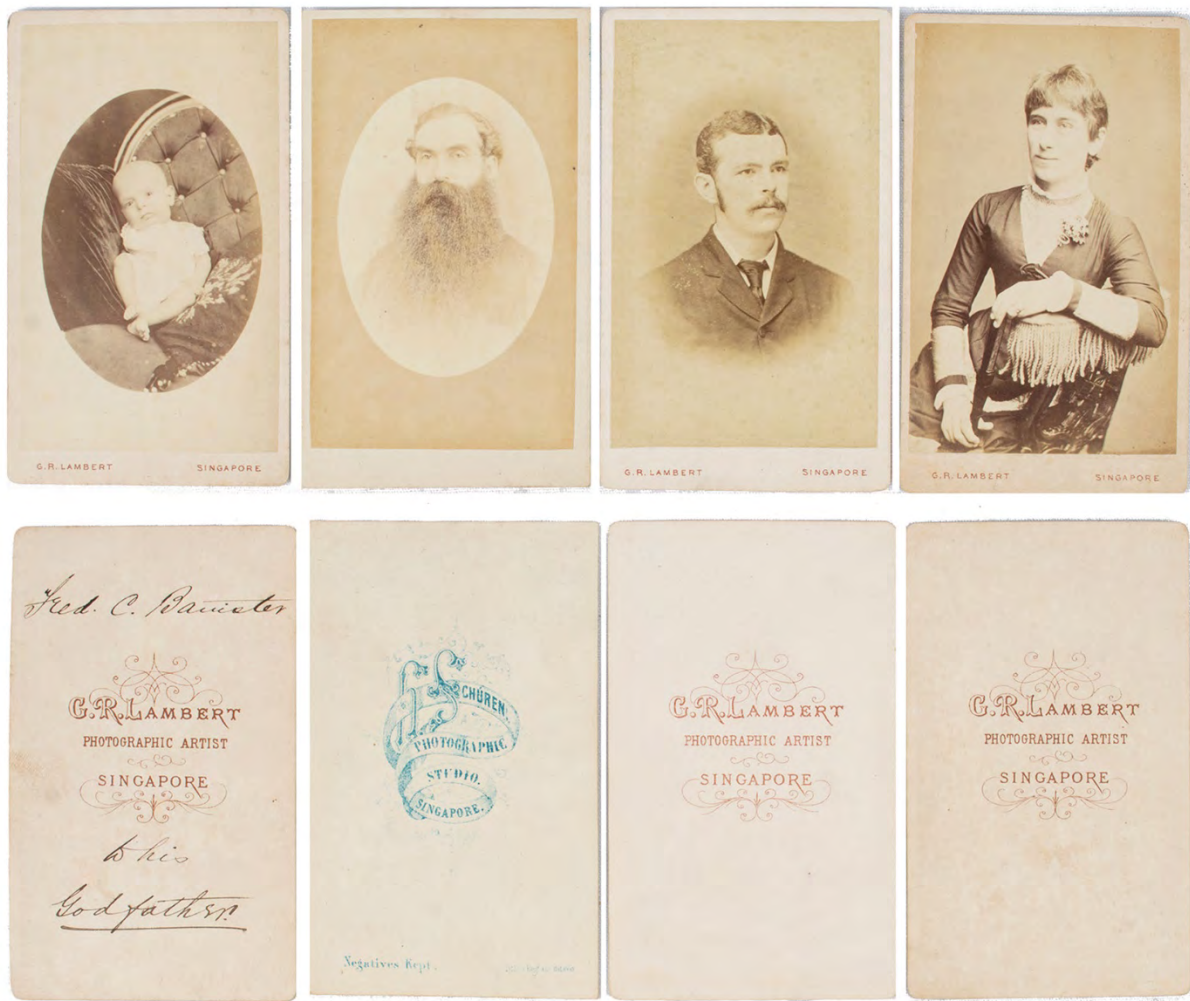 G.R. LAMBERT SINGAPORE
G.R. LAMBERT SINGAPORE
G.R. LAMBERT SINGAPORE
Fred. C. Banister
G.R. LAMBERT
PHOTOGRAPHIC ARTIST
SINGAPORE
to his
Godfather.
A. SCHÜREN.
PHOTOGRAPHIC
STUDIO.
SINGAPORE.
Negatives Kept.
G.R. LAMBERT
PHOTOGRAPHIC ARTIST
SINGAPORE
G.R. LAMBERT
PHOTOGRAPHIC ARTIST
SINGAPORE